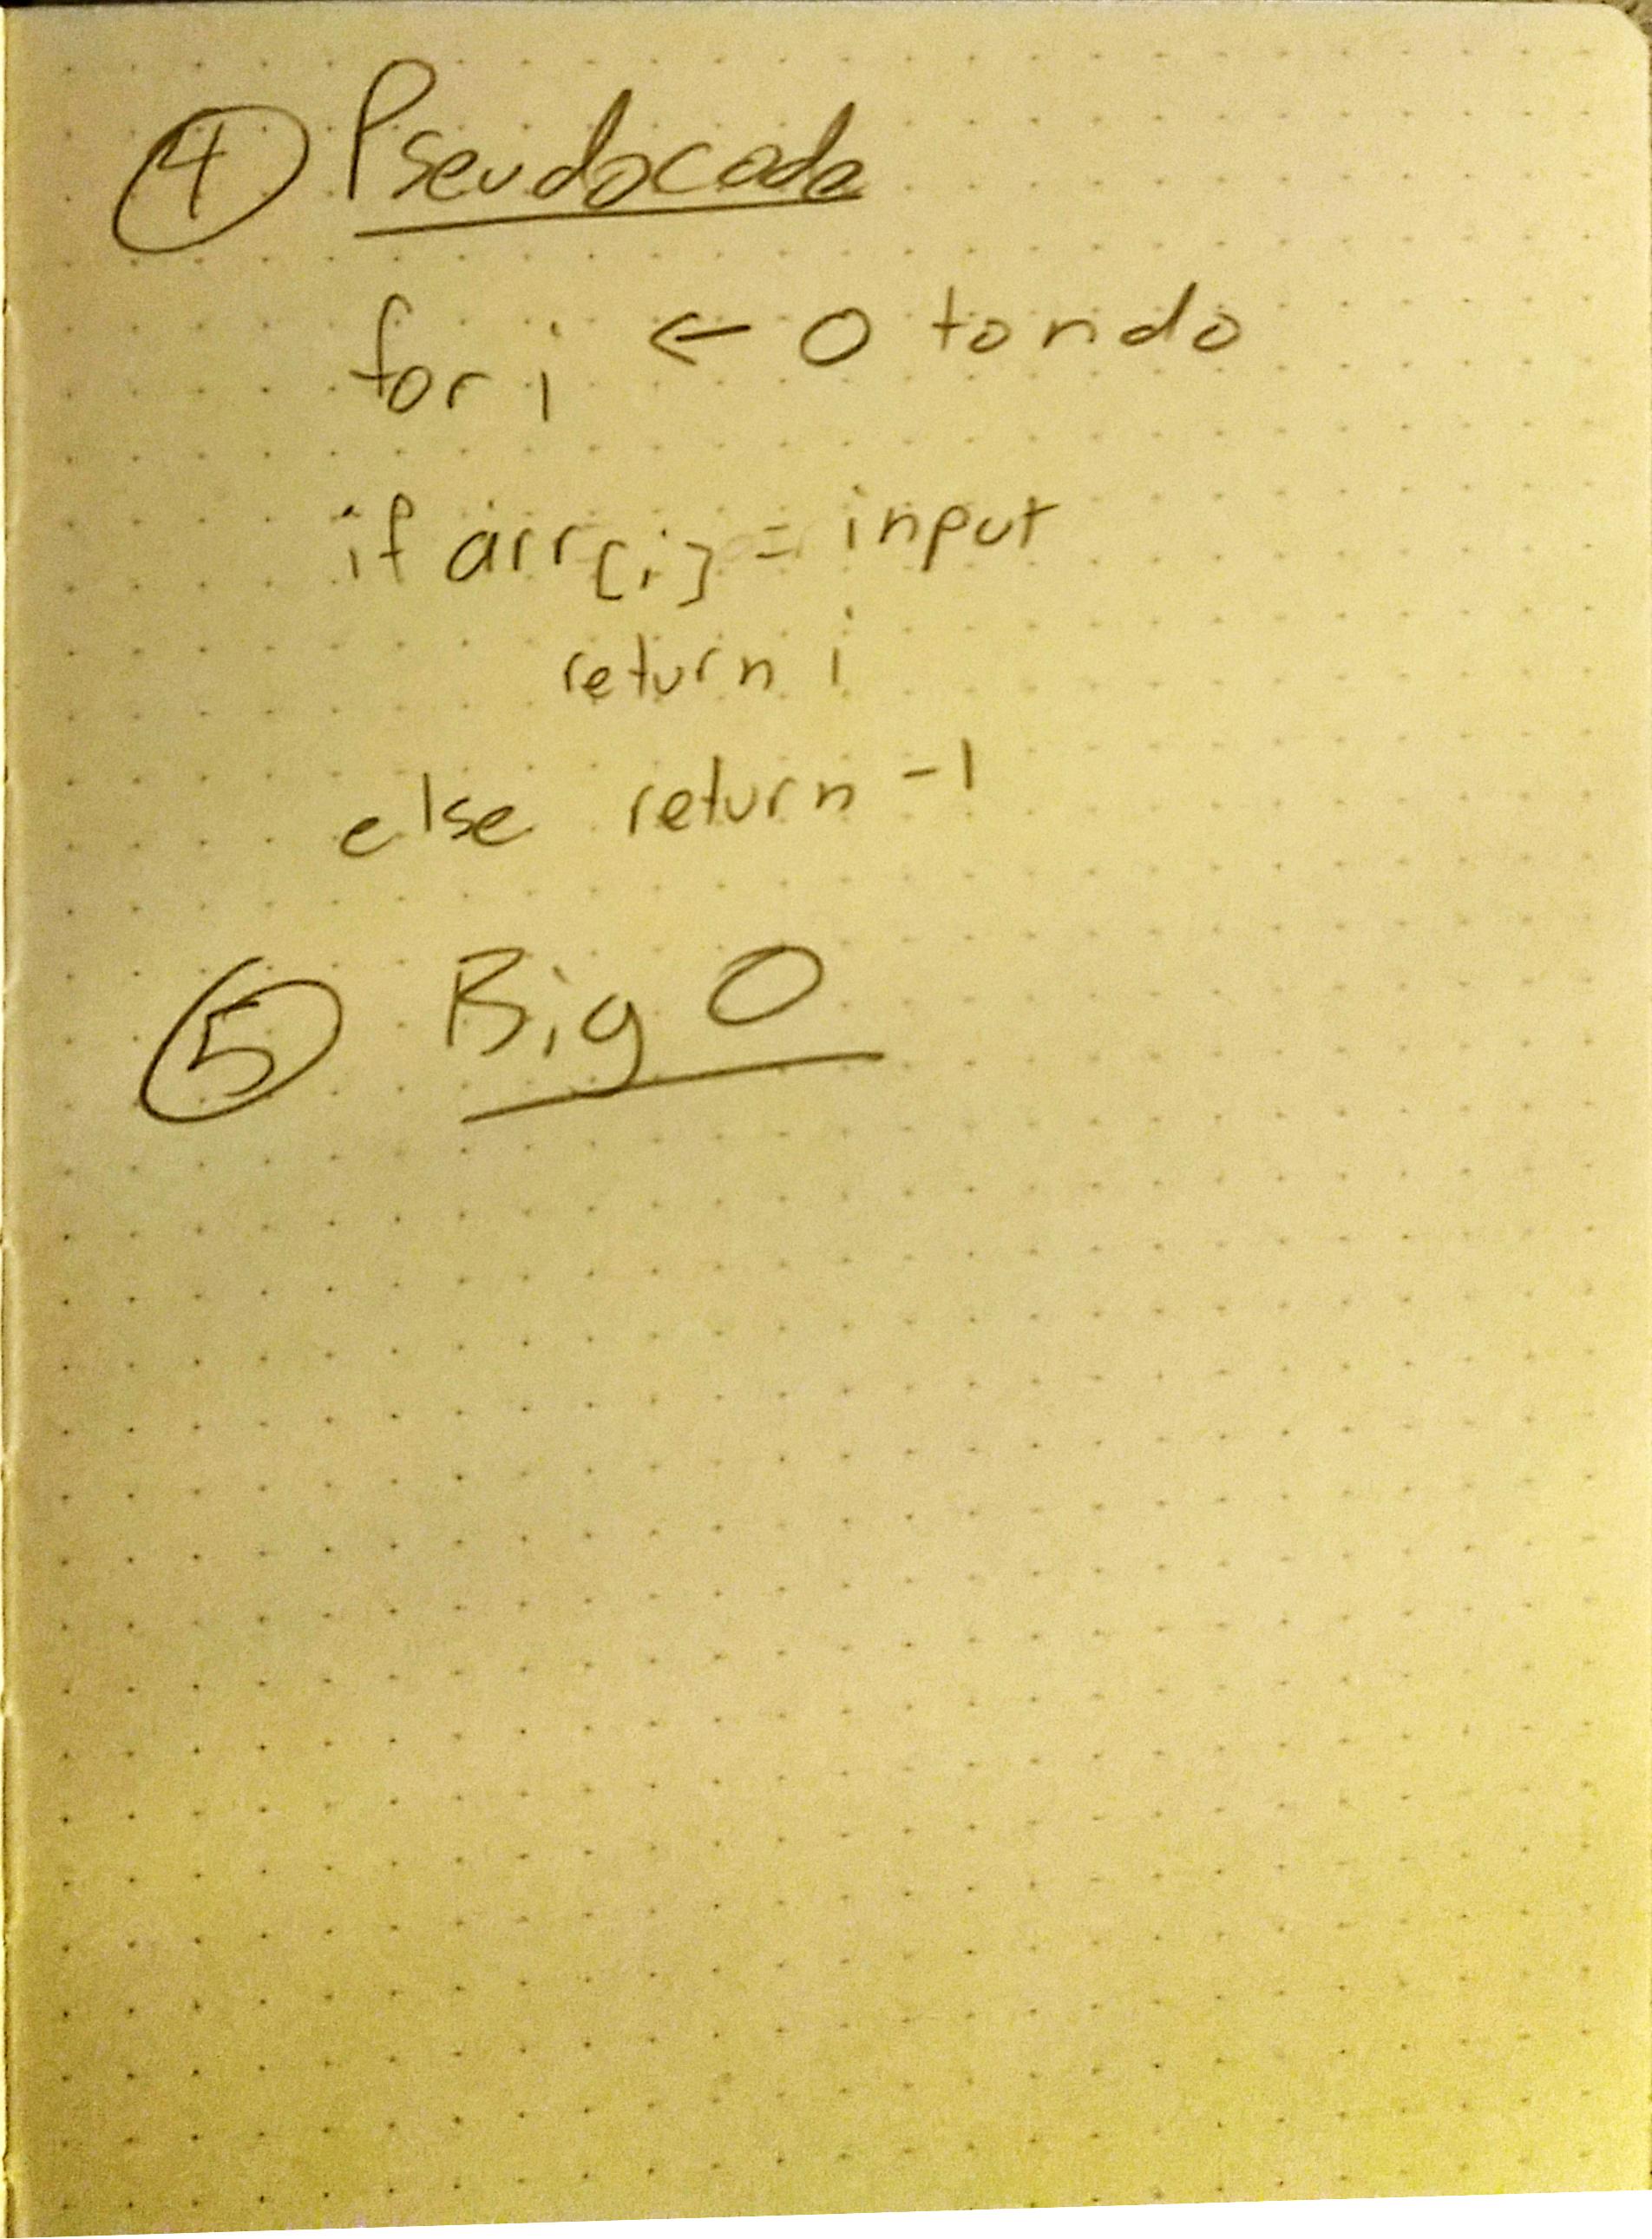 ④ Pseudocode
for i ← 0 to n do
if arr[i] = input
return i
else return -1
⑤ Big O